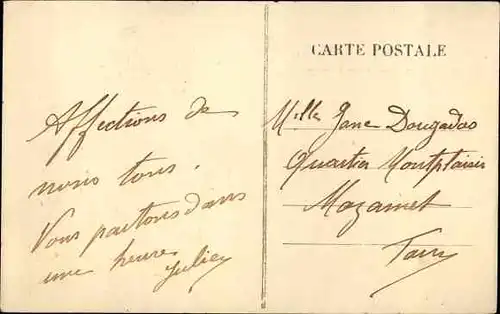 Affections de
nous tous.
Vous partons dans
une heure
Juliey
CARTE POSTALE
Mlle Jane Dougados
Quartier Montplaisir
Mazamet
Tarn